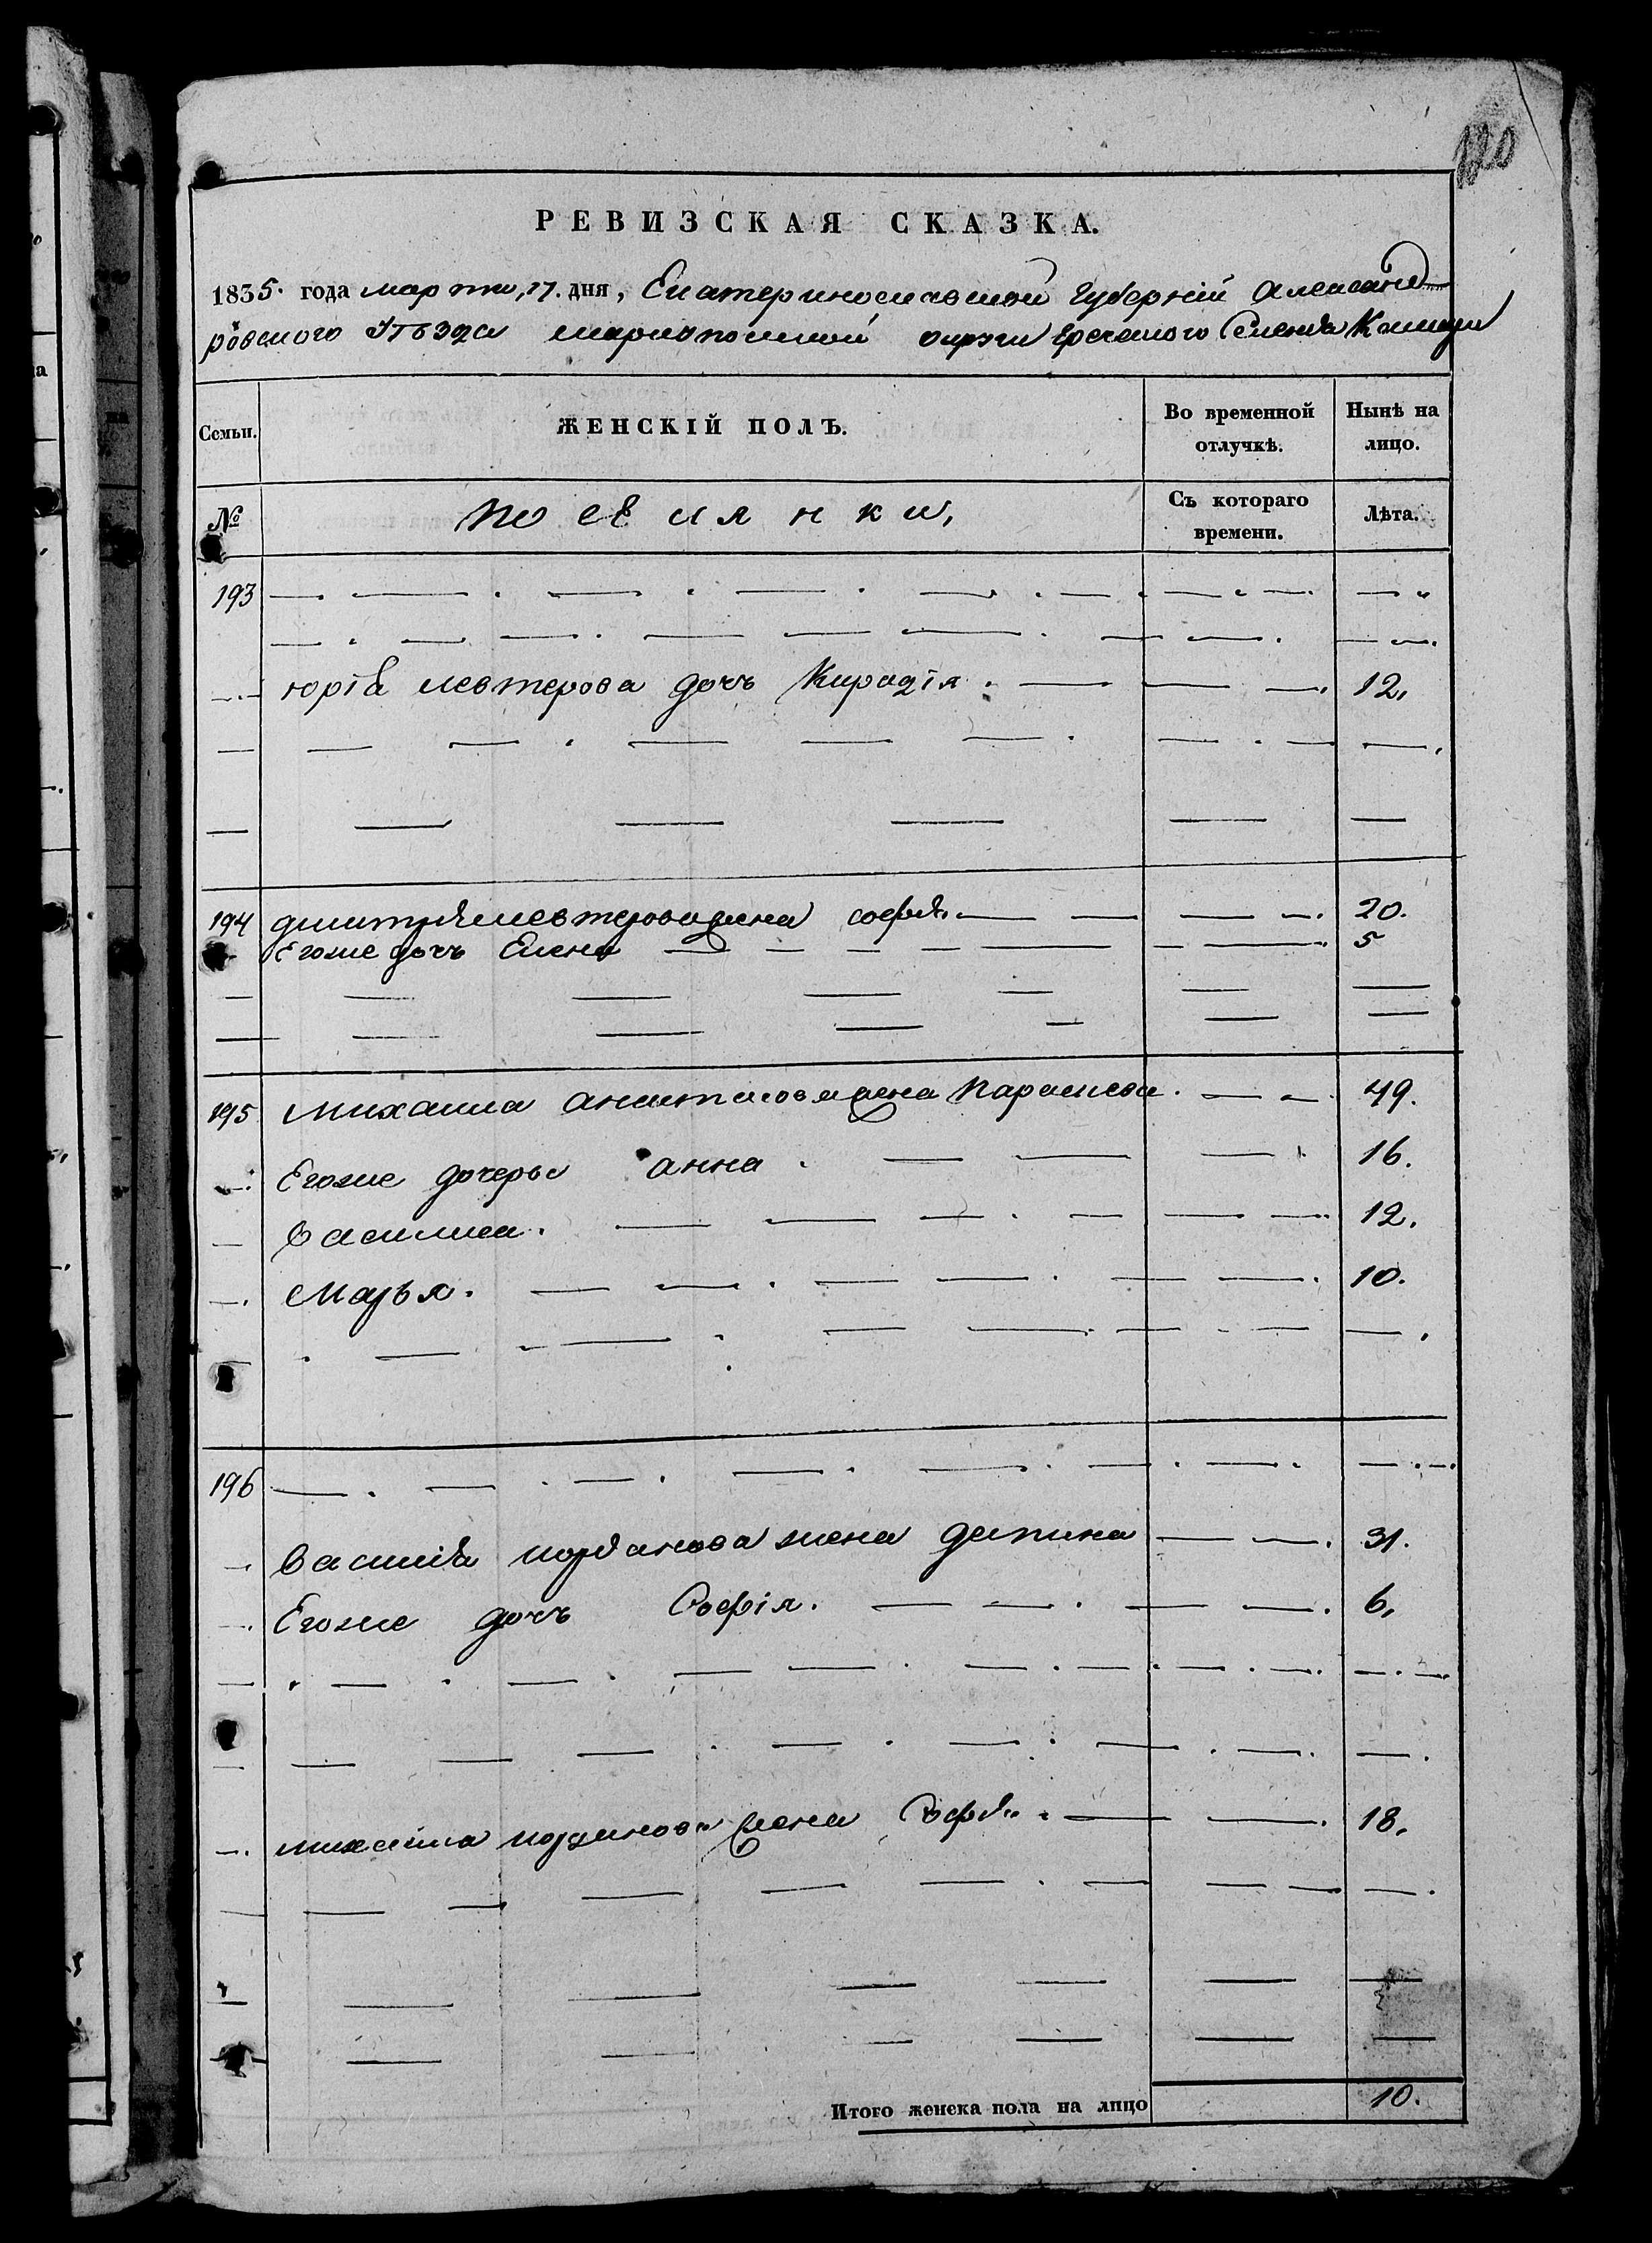 120
РЕВИЗСКАЯ СКАЗКА.
1835. года марта, 17. дня, Екатеринославской Губерніи Александ
ровского Уѣзда Мариупольской округи Греческого Селенія
Семьи. ЖЕНСКІЙ ПОЛЪ. Во временной отлучкѣ. Нынѣ на лицо.
№ поселянки, Съ котораго времени. Лѣта.
193
Юрія левтерова дочь Кирадія. 12,
194 дмитрія левтерова жена софія. 20.
Егоже дочь Елена 5
195 Михаила анастасова жена Параскева. 49.
Егоже дочеры анна. 16.
Василиса. 12.
Марья. 10.
196
Василія иорданова жена деспина 31.
Егоже дочь Софія. 6,
михаила иорданова жена Софія. 18,
Итого женска пола на лицо 10.